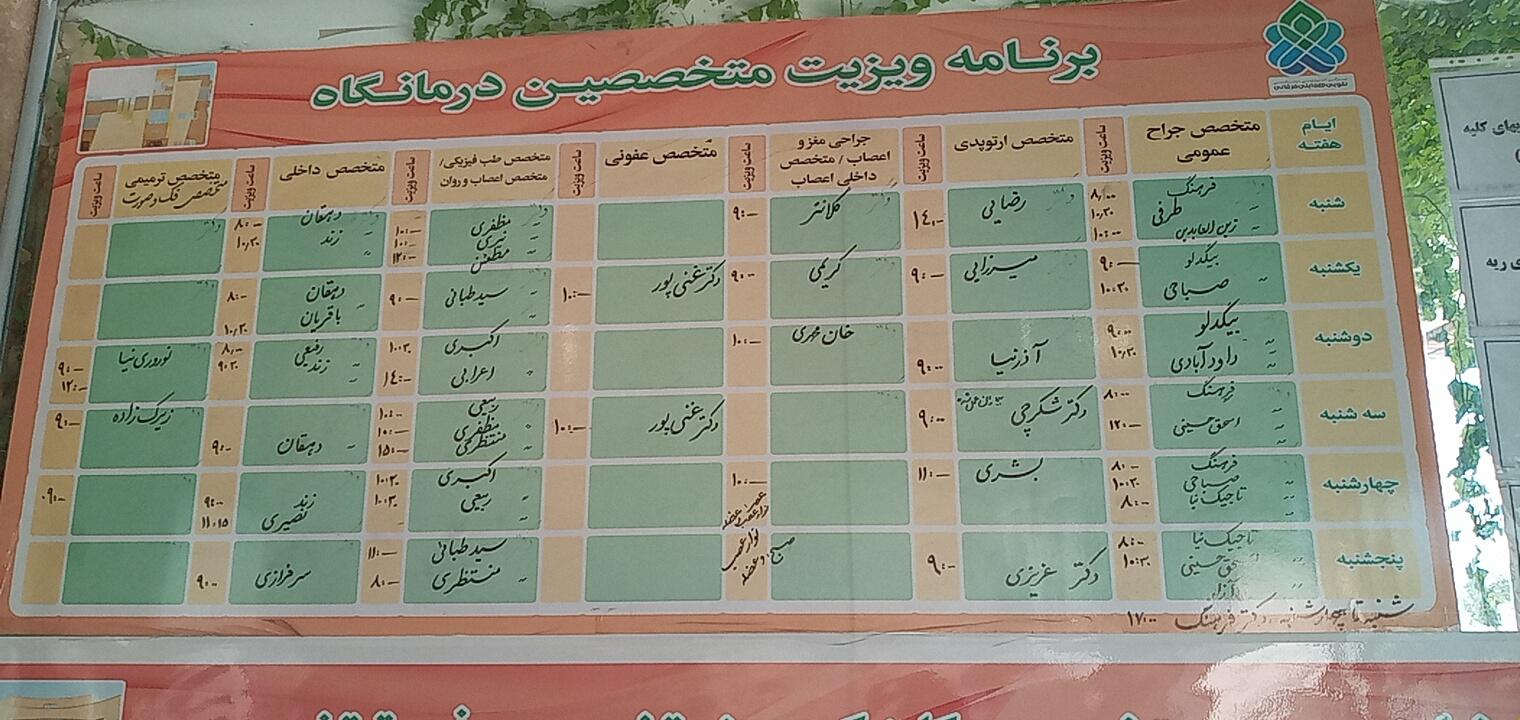 برنامه ویزیت متخصصین درمانگاه
ایام هفته
متخصص جراح عمومی
ساعت ویزیت
متخصص ارتوپدی
ساعت ویزیت
جراحی مغز و اعصاب / متخصص داخلی اعصاب
ساعت ویزیت
متخصص عفونی
ساعت ویزیت
متخصص طب فیزیکی/ متخصص اعصاب و روان
ساعت ویزیت
متخصص داخلی
ساعت ویزیت
متخصص ترمیمی
متخصص فک و صورت
ساعت ویزیت
شنبه
فرهنگ ۸:۰۰
طرفی ۱۰:۳۰
زین العابدین ۱۰:۰۰
دکتر رضایی ۱۴:-
دکتر کلانتر ۹:-
دکتر مظفری ۱۰:-
نیری ۱۰:-
مطمئن ۱۲:-
دهقان ۸:-
زند ۱۰:۳۰
دکتر
یکشنبه
بیگدلو ۹:-
صباحی ۱۰:۳۰
میرزایی ۹:-
کریمی ۹:-
دکتر غنی پور ۱۰:-
سید طبائی ۹:-
دهقان ۸:-
باقریان ۱۰:۳۰
دوشنبه
بیگدلو ۹:۰۰
داودآبادی ۱۰:۳۰
آذرنیا ۹:۰۰
خان محمدی ۱۰:-
اکبری ۱۰:۳۰
اعرابی ۱۴:-
رفیعی ۸:۰۰
زند ۹:۳۰
نوروزی نیا ۹:-
۱۲:-
سه شنبه
فرهنگ ۸:۰۰
اسحق حسینی ۱۲:-
دکتر شکرچی ۹:۰۰
دکتر غنی پور ۱۰:-
ربیعی ۱۰:-
مظفری ۱۰:-
منتظری ۱۵:-
دهقان ۹:-
زیرک زاده ۹:-
چهارشنبه
فرهنگ ۸:-
صباحی ۱۰:۳۰
تاجیک نیا ۸:-
بشری ۱۱:-
۱۰:-
اکبری ۱۰:۳۰
ربیعی ۱۰:۳۰
زند ۹:-
نصیری ۱۱:۱۵
۰۹:-
پنجشنبه
تاجیک نیا ۸:-
حسینی ۱۰:۳۰
دکتر عزیزی ۹:-
نوار عصب و عضله
صبح
سید طبائی ۱۱:-
منتظری ۸:-
سرفرازی ۹:-
شنبه تا چهارشنبه دکتر فرهنگ ۱۷:۰۰